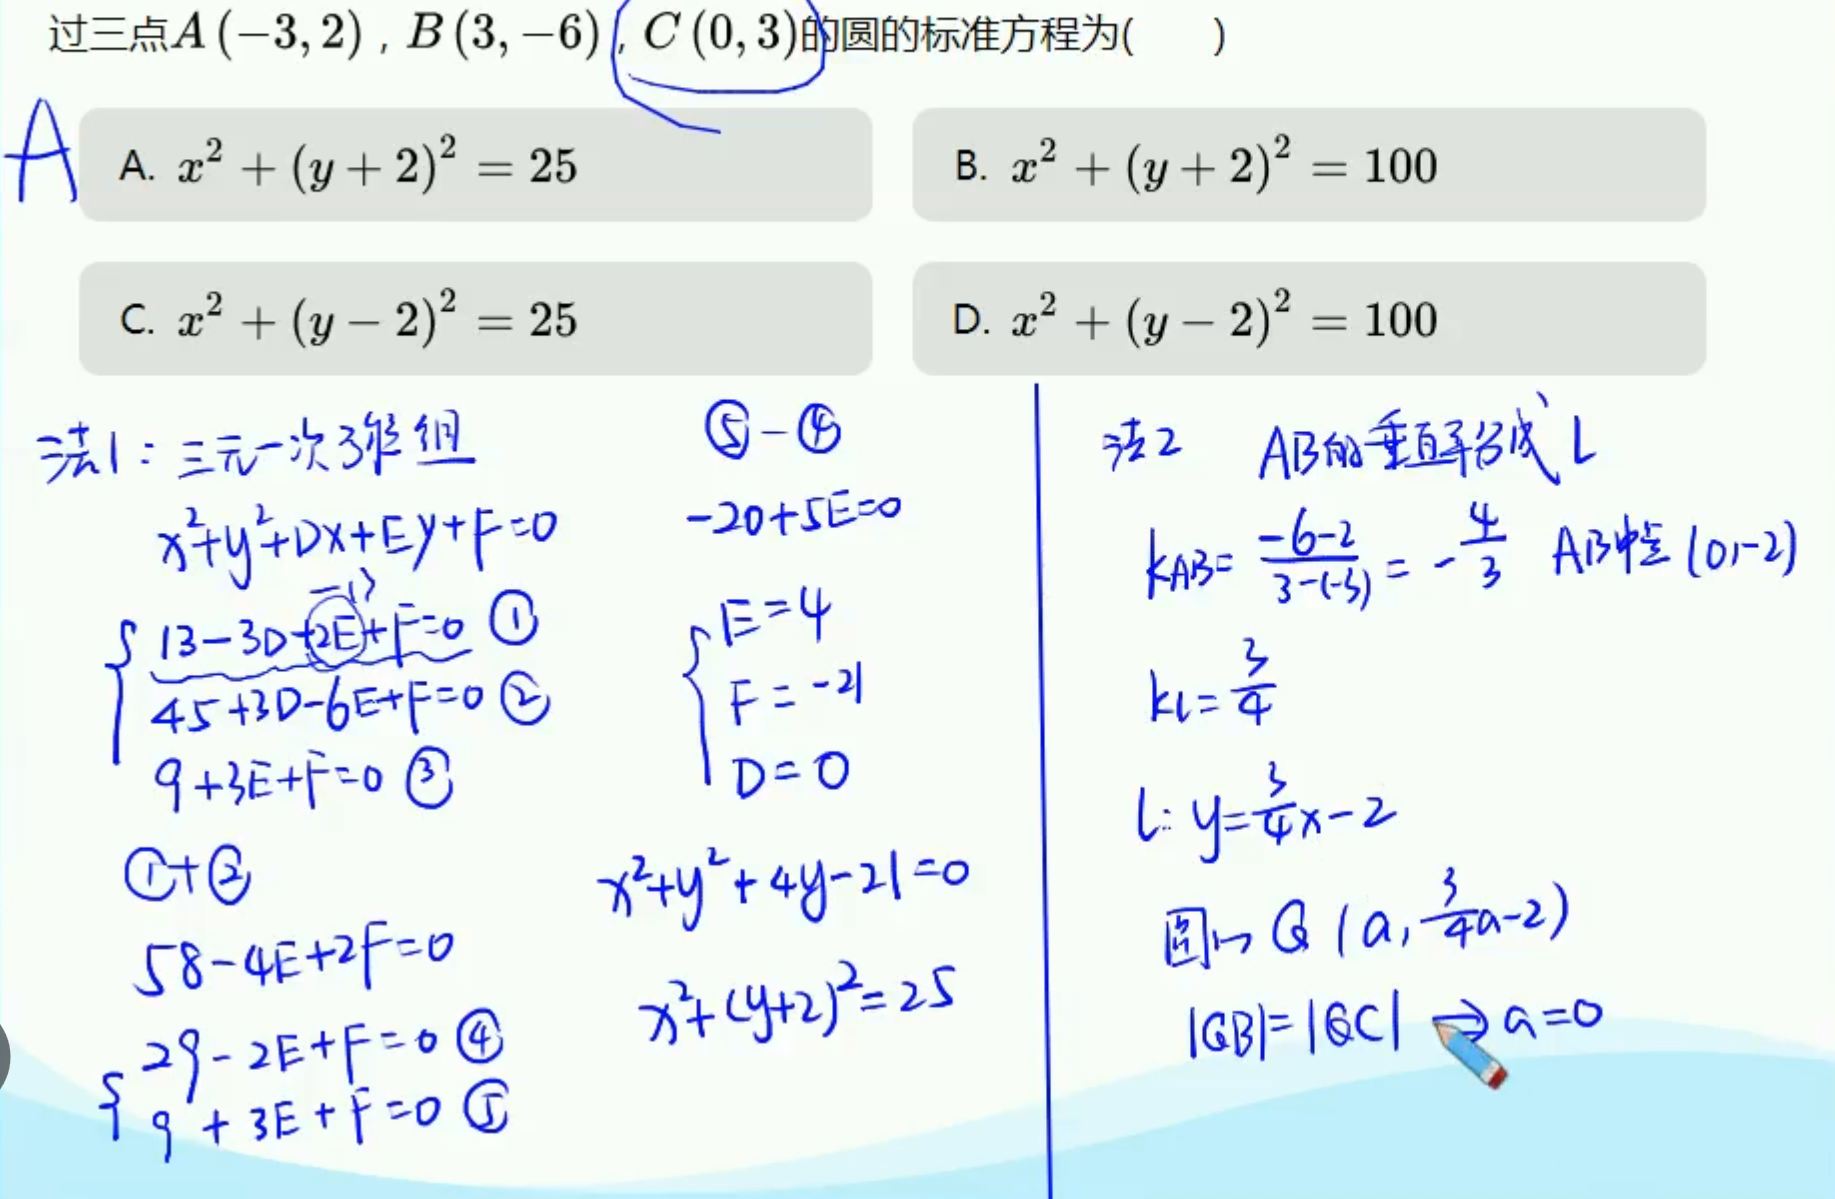 过三点A(−3,2),B(3,−6),C(0,3)的圆的标准方程为(  )
A
A. x² + (y + 2)² = 25
B. x² + (y + 2)² = 100
C. x² + (y − 2)² = 25
D. x² + (y − 2)² = 100
法1:三元一次方程组
x²+y²+Dx+Ey+F=0
13-3D+2E+F=0 ①
45+3D-6E+F=0 ②
9+3E+F=0 ③
①+②
58-4E+2F=0
29-2E+F=0 ④
9+3E+F=0 ⑤
⑤-④
-20+5E=0
E=4
F=-21
D=0
x²+y²+4y-21=0
x²+(y+2)²=25
法2 AB的垂直平分线L
kAB=(-6-2)/(3-(-3))=-4/3 AB中点(0,-2)
kL=3/4
L: y=3/4x-2
圆心Q(a,3/4a-2)
|QB|=|QC| ⇒ a=0